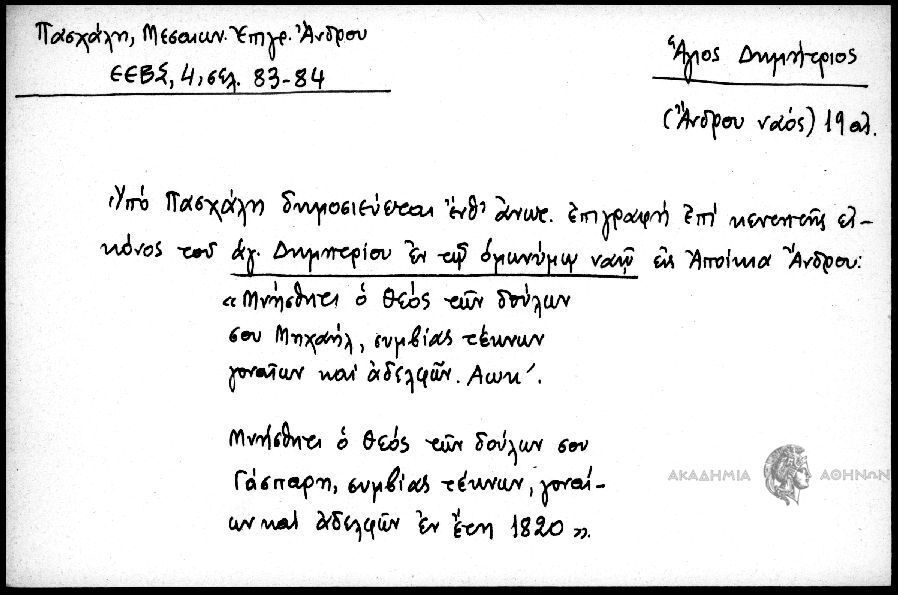 Πασχάλη, Μεσαιων. Ἐπιγρ. Ἄνδρου
ΕΕΒΣ, 4, σελ. 83-84
Ἅγιος Δημήτριος
(Ἄνδρου ναός) 19 αἰ.
Ὑπό Πασχάλη δημοσιεύεται ἔνθ' ἄνωτ. ἐπιγραφή ἐπί κενεπτῆς εἰ-
κόνος τοῦ ἁγ. Δημητρίου ἐν τῷ ὁμωνύμῳ ναῷ εἰς Ἀποίκια Ἄνδρου:
«Μνήσθητι ὁ θεός τῶν δούλων
σου Μηχαήλ, συμβίας τέκνων
γοναίων καί ἀδελφῶν. Αωκ´.
Μνήσθητι ὁ θεός τῶν δούλων σου
Γάσπαρη, συμβίας τέκνων, γοναί-
ων καί ἀδελφῶν ἐν ἔτη 1820».
ΑΚΑΔΗΜΙΑ ΑΘΗΝΩΝ